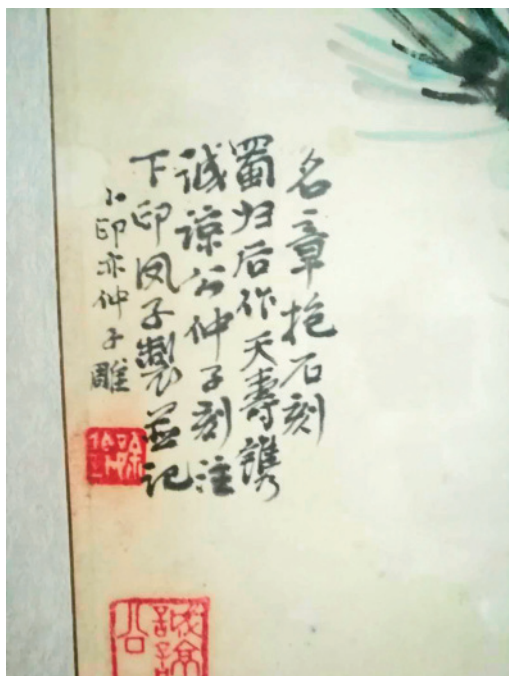 名章抱石刻
蜀归后作天壽鐫
诚諒公仲子刻注
下印凤子製並记
小印亦仲子雕